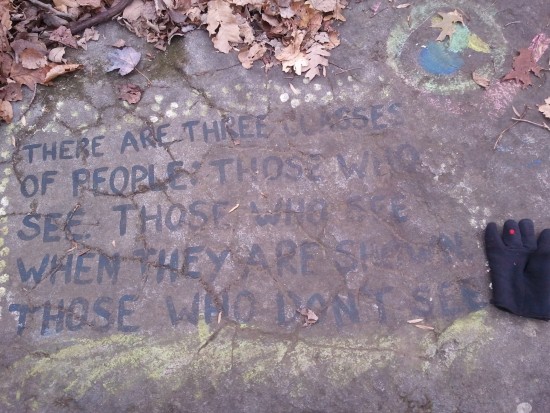 THERE ARE THREE CLASSES
OF PEOPLE: THOSE WHO
SEE. THOSE WHO SEE
WHEN THEY ARE SHOWN
THOSE WHO DON'T SEE